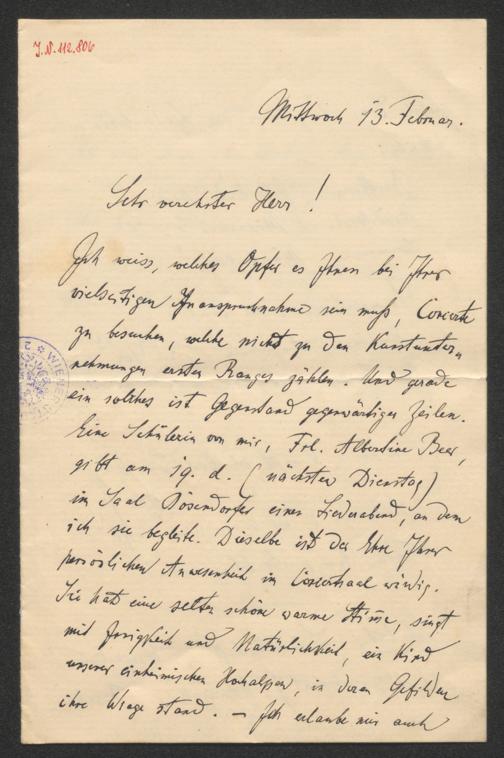 J.N. 112.806
Mittwoch 13. Februar.
Sehr verehrter Herr!
Ich weiss, welches Opfer es Ihnen bei Ihrer
vielseitigen Inanspruchnahme sein muß, Concerte
zu besuchen, welche nicht zu den Kunstunter-
nehmungen ersten Ranges zählen. Und gerade
ein solches ist Gegenstand gegenwärtiger Zeilen.
Eine Schülerin von mir, Frl. Albertine Beer,
gibt am 19. d. (nächsten Dienstag)
im Saal Bösendorfer einen Liederabend, an dem
ich sie begleite. Dieselbe ist der Ehre Ihrer
persönlichen Anwesenheit im Concertsaal würdig.
Sie hat eine selten schöne warme Stimme, singt
mit Innigkeit und Natürlichkeit, ein Kind
unserer einheimischen Hochalpen, in deren Gefilden
ihre Wiege stand. – Ich erlaube mir auch
WIENER